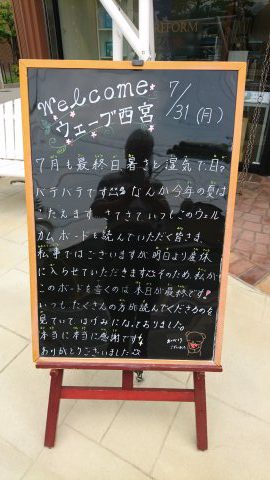 REFORM
Welcome 7/31(月)
ウェーブ西宮
7月も最終日暑さと湿気で日々
バテバテです なんか今年の夏は
こたえます。さてさていつもこのウェル
カムボードを読んでいただく皆さま
私事ではございますが明日より産休
に入らせていただきます そのため、私が
このボードを書くのは本日が最終です!
いつも、たくさんの方が読んでくださるのを
見ていて、はげみになっておりました。
本当に本当に感謝です!
ありがとうございました
ありがとう
ございました